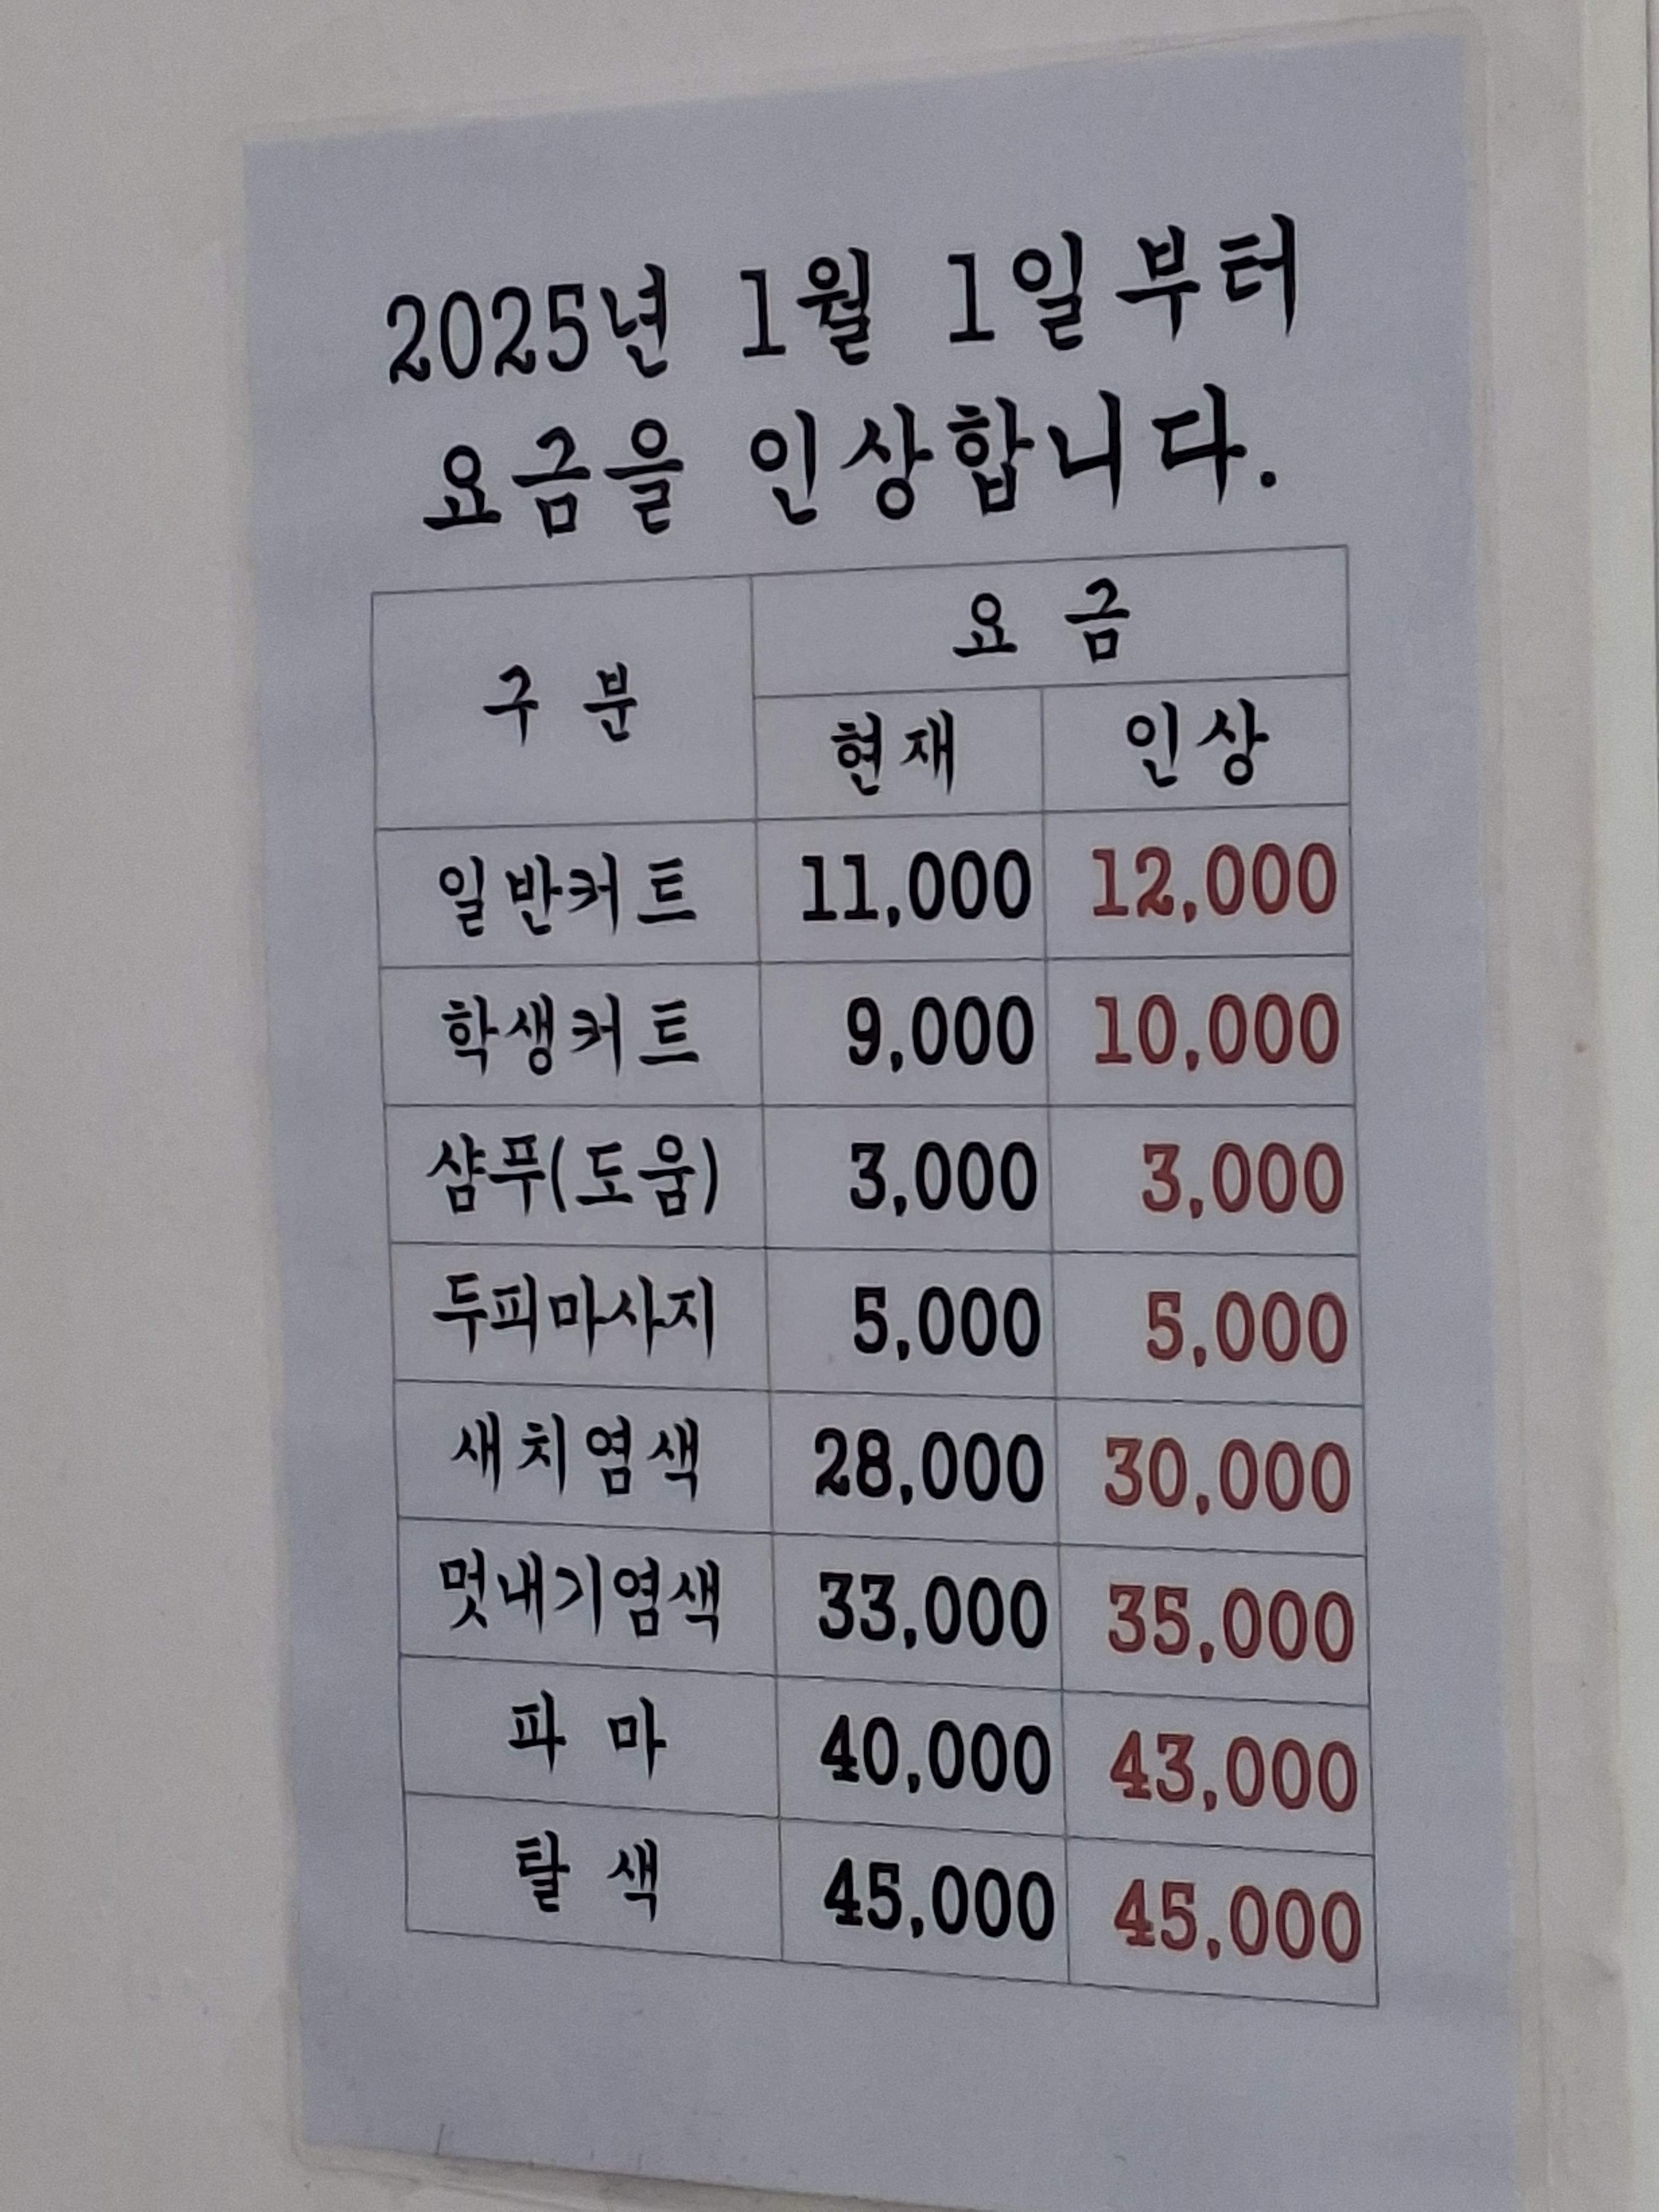 2025년 1월 1일부터
요금을 인상합니다.
구 분 요 금
현재 인상
일반커트 11,000 12,000
학생커트 9,000 10,000
샴푸(도움) 3,000 3,000
두피마사지 5,000 5,000
새치염색 28,000 30,000
멋내기염색 33,000 35,000
파 마 40,000 43,000
탈 색 45,000 45,000